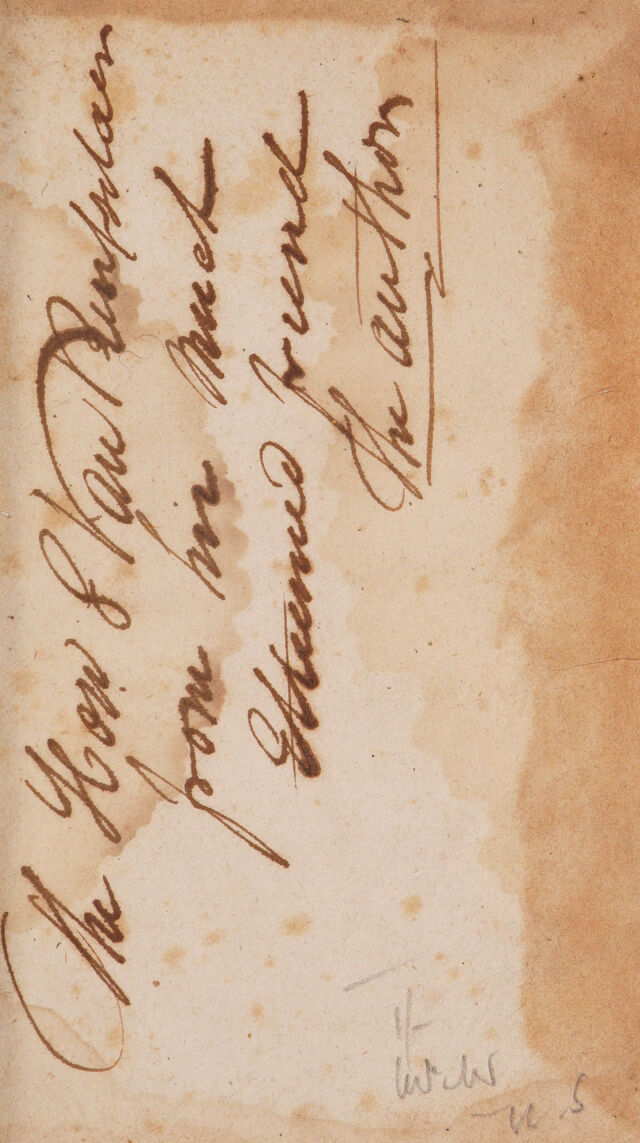 The Hon S Van Rensselaer
from his much
Esteemed friend
The author